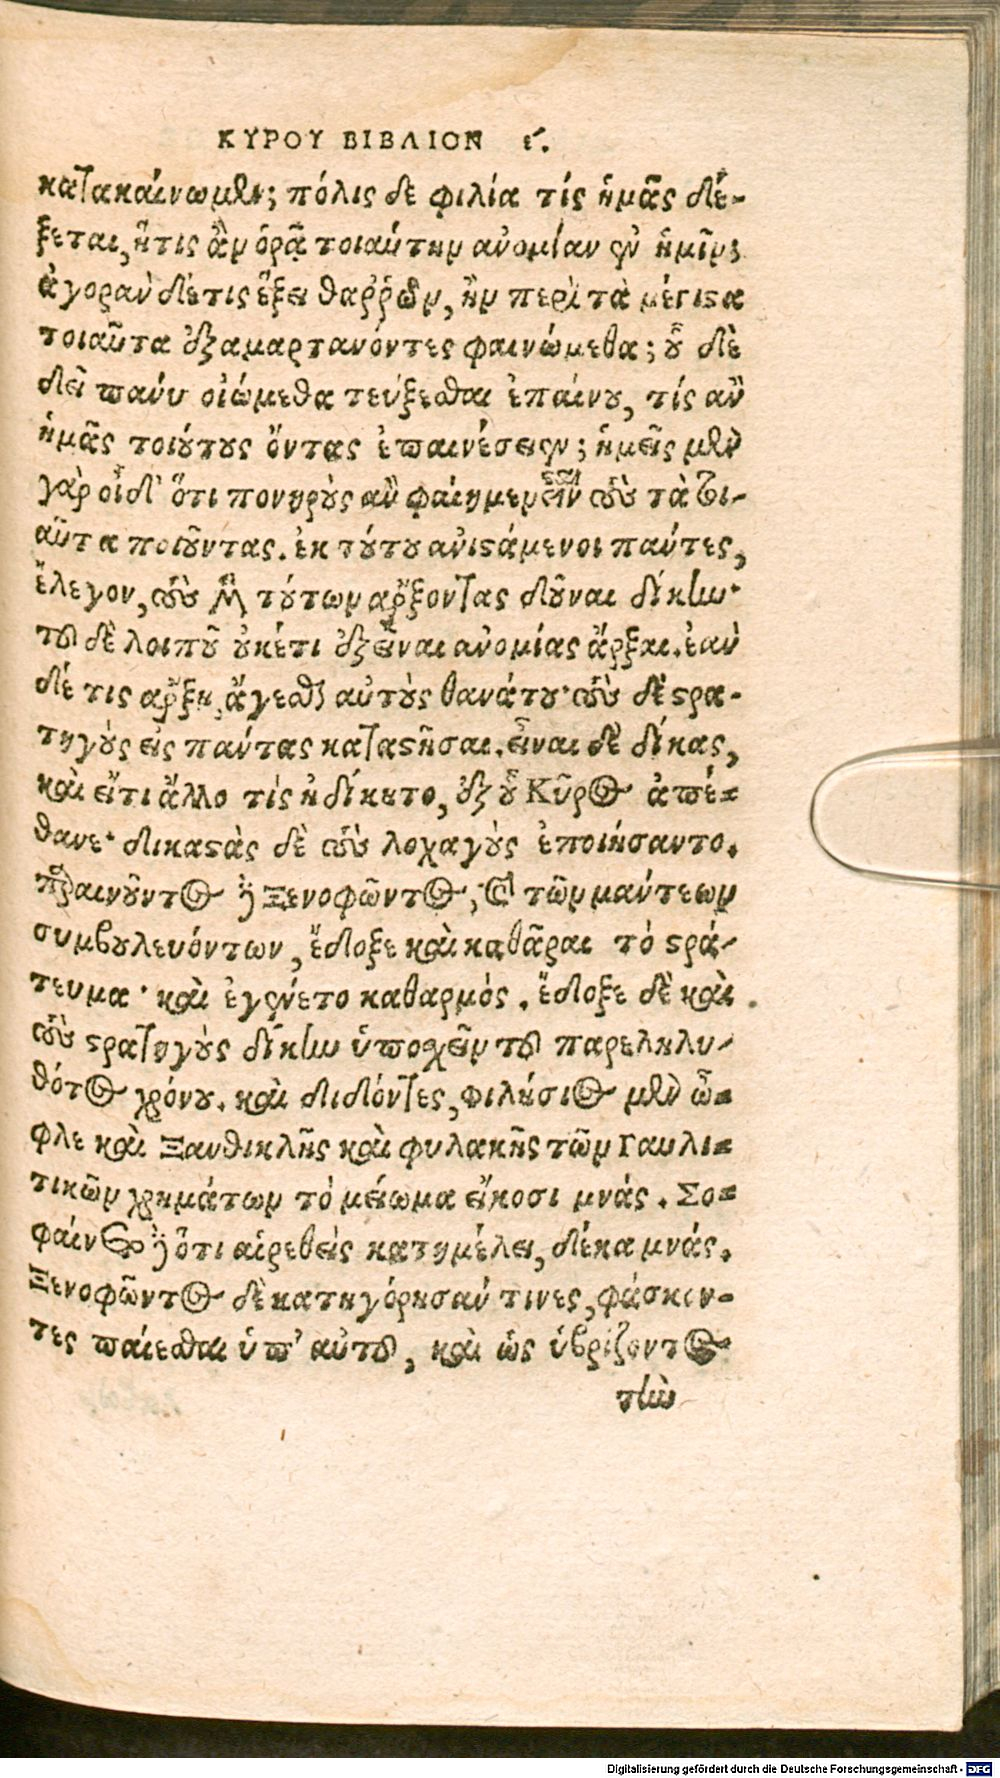 ΚΥΡΟΥ ΒΙΒΛΙΟΝ ε.
κατακαίνωμεν; πόλις δὲ φιλία τίς ἡμᾶς δέ-
ξεται, ἥτις ἂν ὁρᾷ τοιαύτην ἀνομίαν ἐν ἡμῖν;
ἀγορὰν δέ τις ἕξει θαῤῥῶν, ἢν περὶ τὰ μέγιστα
τοιαῦτα ἐξαμαρτανόντες φαινώμεθα; οὗ δὲ
δεῖ πάνυ οἰώμεθα τεύξεσθαι ἐπαίνου, τίς ἂν
ἡμᾶς τοιούτους ὄντας ἐπαινέσειεν; ἡμεῖς μὲν
γὰρ οἶδ' ὅτι πονηροὺς ἂν φαίημεν εἶναι τοὺς τὰ τοι-
αῦτα ποιοῦντας. ἐκ τούτου ἀνιστάμενοι πάντες,
ἔλεγον, τοὺς μὲν τούτων ἄρξοντας δοῦναι δίκην·
τοῦ δὲ λοιποῦ οὐκέτι ἐξεῖναι ἀνομίας ἄρξαι. ἐὰν
δέ τις ἄρξῃ, ἄγεσθαι αὐτοὺς θανάτου· τοὺς δὲ στρα-
τηγοὺς εἰς πάντας καταστῆσαι. εἶναι δὲ δίκας,
καὶ εἴ τι ἄλλο τίς ἠδίκητο, ἐξ οὗ Κῦρος ἀπέ-
θανε· δικαστὰς δὲ τοὺς λοχαγοὺς ἐποιήσαντο.
παραινοῦντος δὲ Ξενοφῶντος, καὶ τῶν μάντεων
συμβουλευόντων, ἔδοξε καὶ καθᾶραι τὸ στρά-
τευμα· καὶ ἐγένετο καθαρμός. ἔδοξε δὲ καὶ
τοὺς στρατηγοὺς δίκην ὑποσχεῖν τοῦ παρεληλυ-
θότος χρόνου. καὶ διδόντες, Φιλήσιος μὲν ὦ-
φλε καὶ Ξανθικλῆς καὶ φυλακῆς τῶν Γαυλι-
τικῶν χρημάτων τὸ μείωμα εἴκοσι μνάς. Σο-
φαίνετος δὲ ὅτι αἱρεθεὶς κατημέλει, δέκα μνάς.
Ξενοφῶντος δὲ κατηγόρησάν τινες, φάσκον-
τες παίεσθαι ὑπ' αὐτοῦ, καὶ ὡς ὑβρίζοντος
τὴν
Digitalisierung gefördert durch die Deutsche Forschungsgemeinschaft - DFG